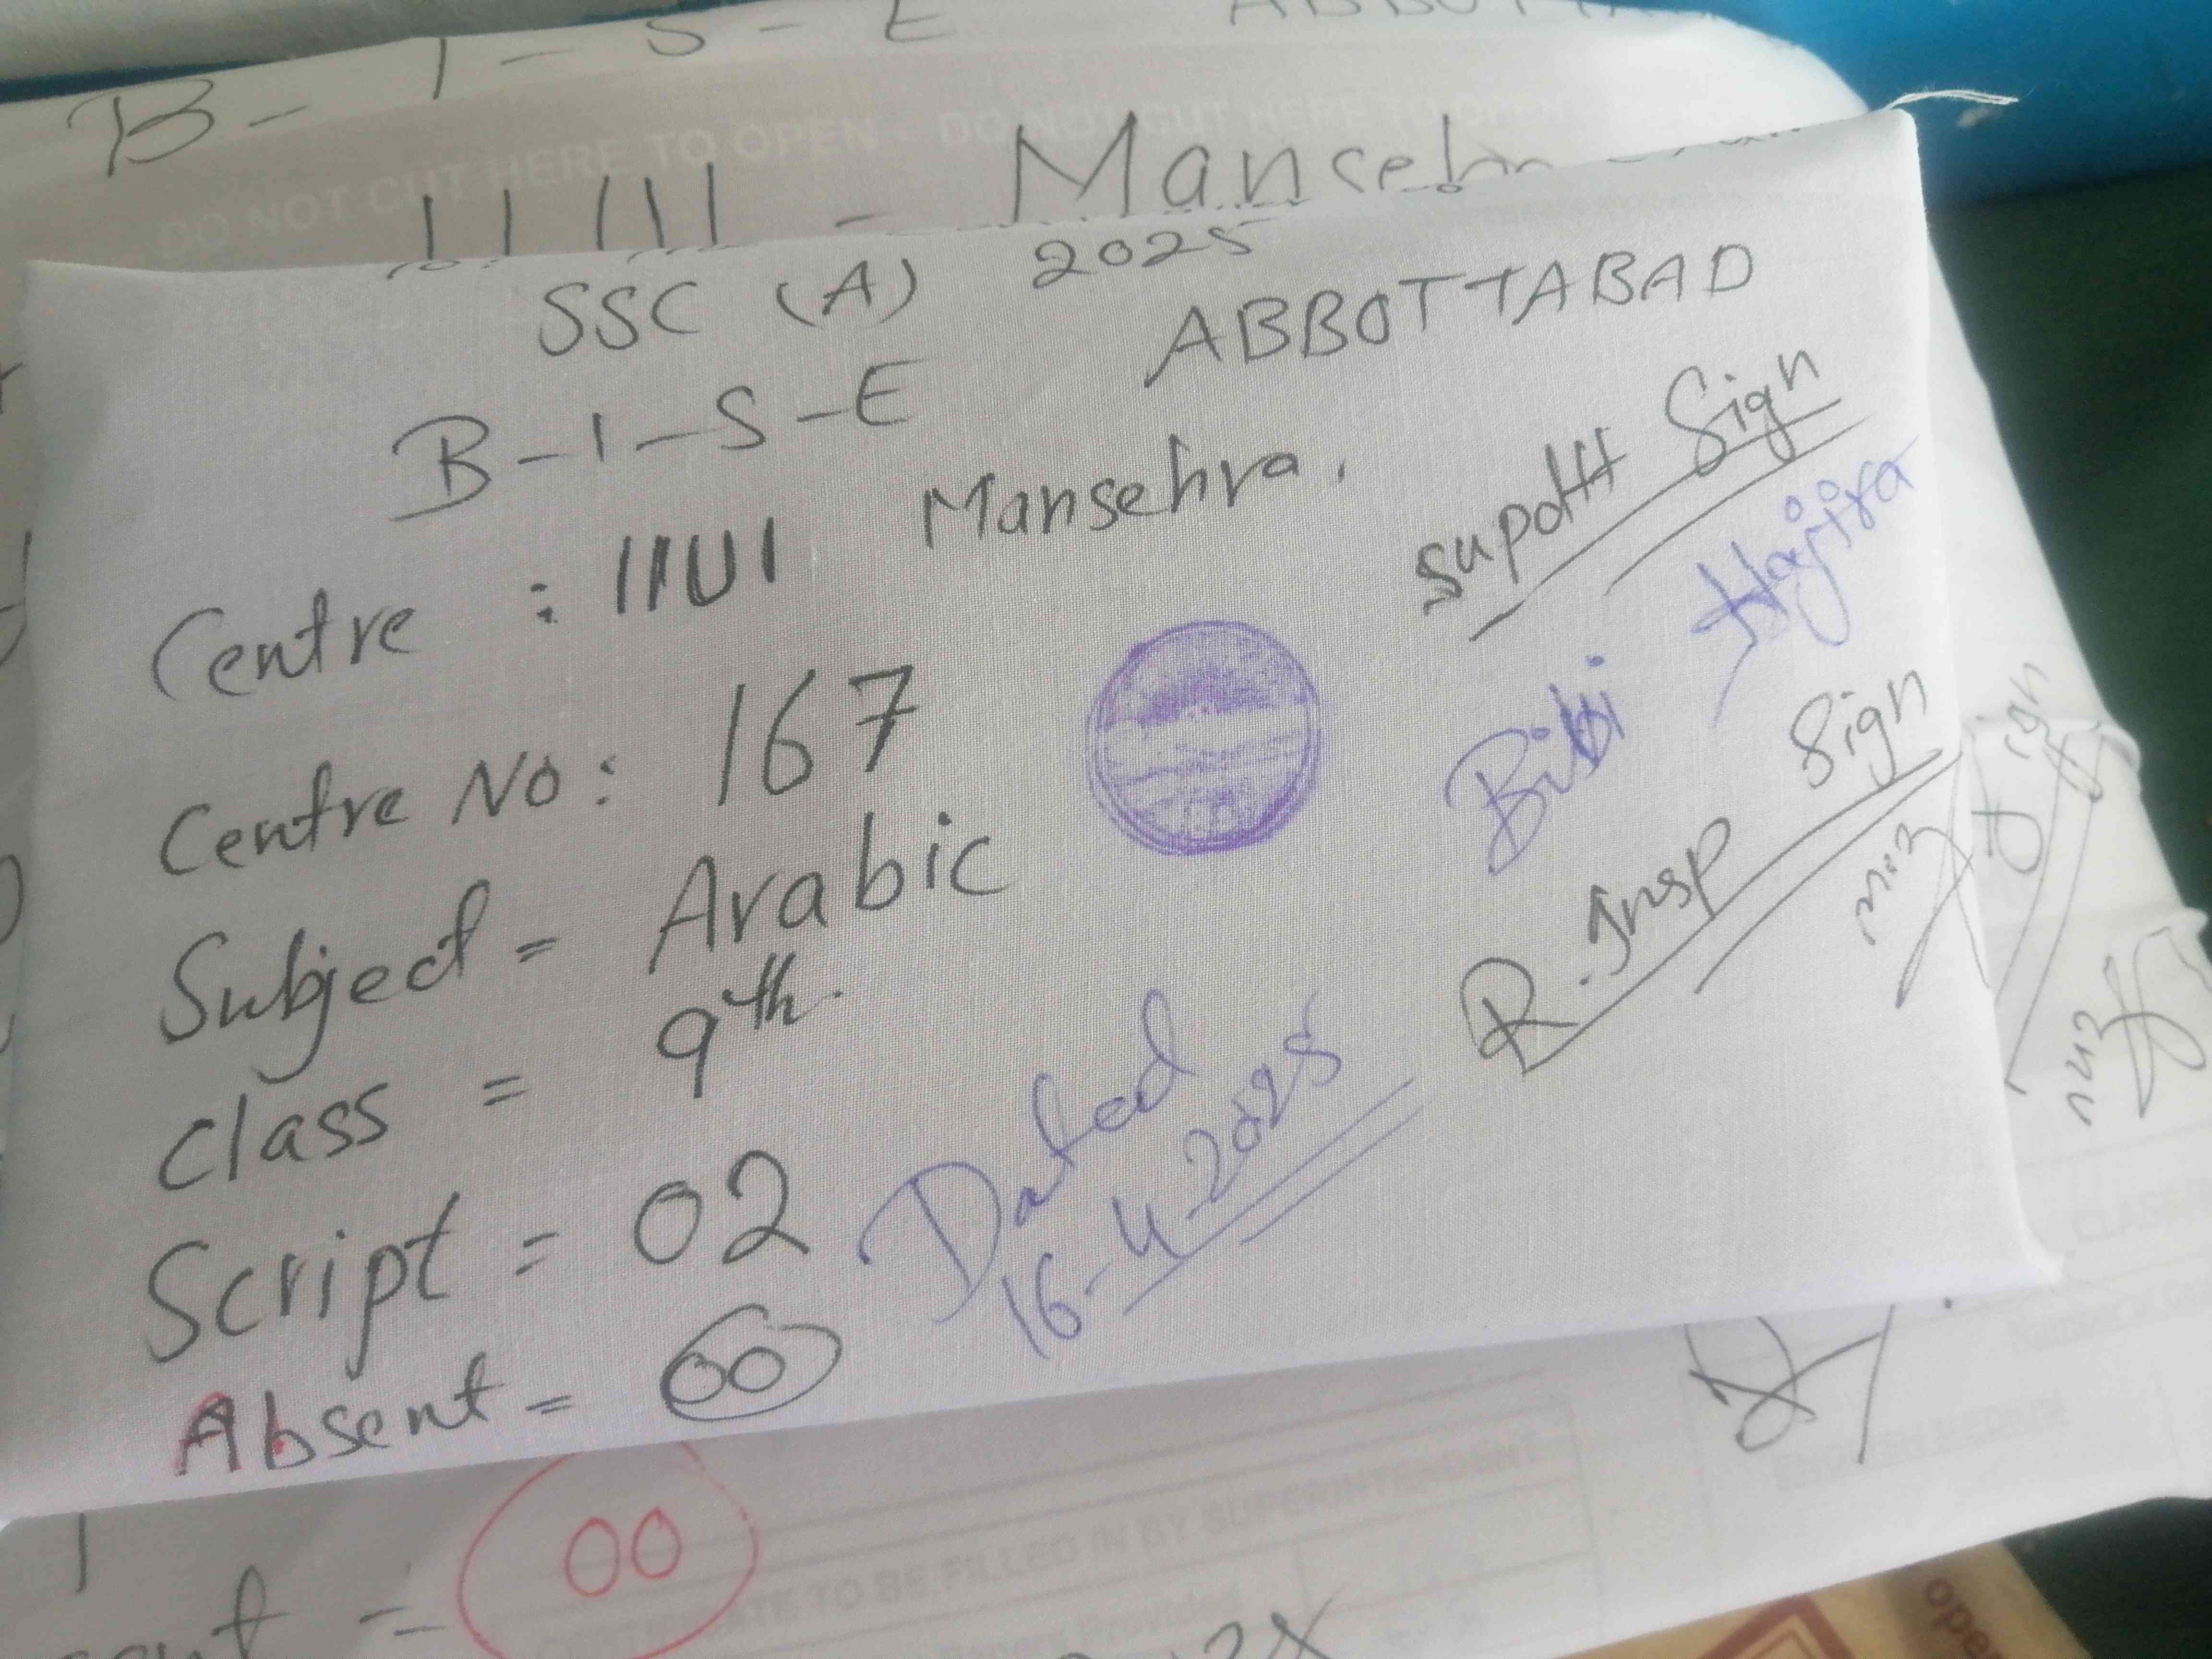 B - I - S - E ABBOTTA
DO NOT CUT HERE TO OPEN DO NOT CUT HERE TO OPEN
Manseh
SSC (A) 2025
B-I-S-E ABBOTTABAD
Centre : IIUI Mansehra.
Centre No: 167
Subject = Arabic
Class = 9th.
Script = 02
Absent = 00
Supdtt Sign
Bibi Hajira
R.Insp Sign
Dated
16-4-2025
ign
00
TO BE FILLED IN BY SUPERINTENDENT
Provided
CLASS
ENGLISH MEDIUM
ope